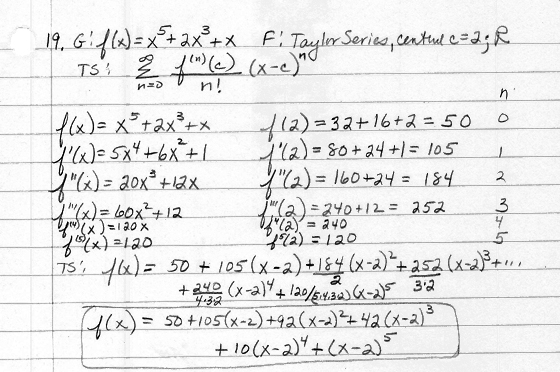 19. G: f(x)=x⁵+2x³+x F: Taylor Series, center c=2; R
TS: ∞ Σ n=0 f⁽ⁿ⁾(c)/n! (x-c)ⁿ
n
f(x)= x⁵+2x³+x f(2)=32+16+2=50 0
f'(x)=5x⁴+6x²+1 f'(2)=80+24+1=105 1
f''(x)= 20x³+12x f''(2)=160+24= 184 2
f'''(x)=60x²+12 f'''(2)=240+12= 252 3
f⁽⁴⁾(x)=120x f⁴(2)= 240 4
f⁽⁵⁾(x)=120 f⁵(2)=120 5
TS: f(x)= 50 + 105(x-2)+184/2 (x-2)²+252/3·2 (x-2)³+...
+240/4·3·2 (x-2)⁴+120/(5·4·3·2)(x-2)⁵
f(x)= 50+105(x-2)+92(x-2)²+42(x-2)³
+10(x-2)⁴+(x-2)⁵